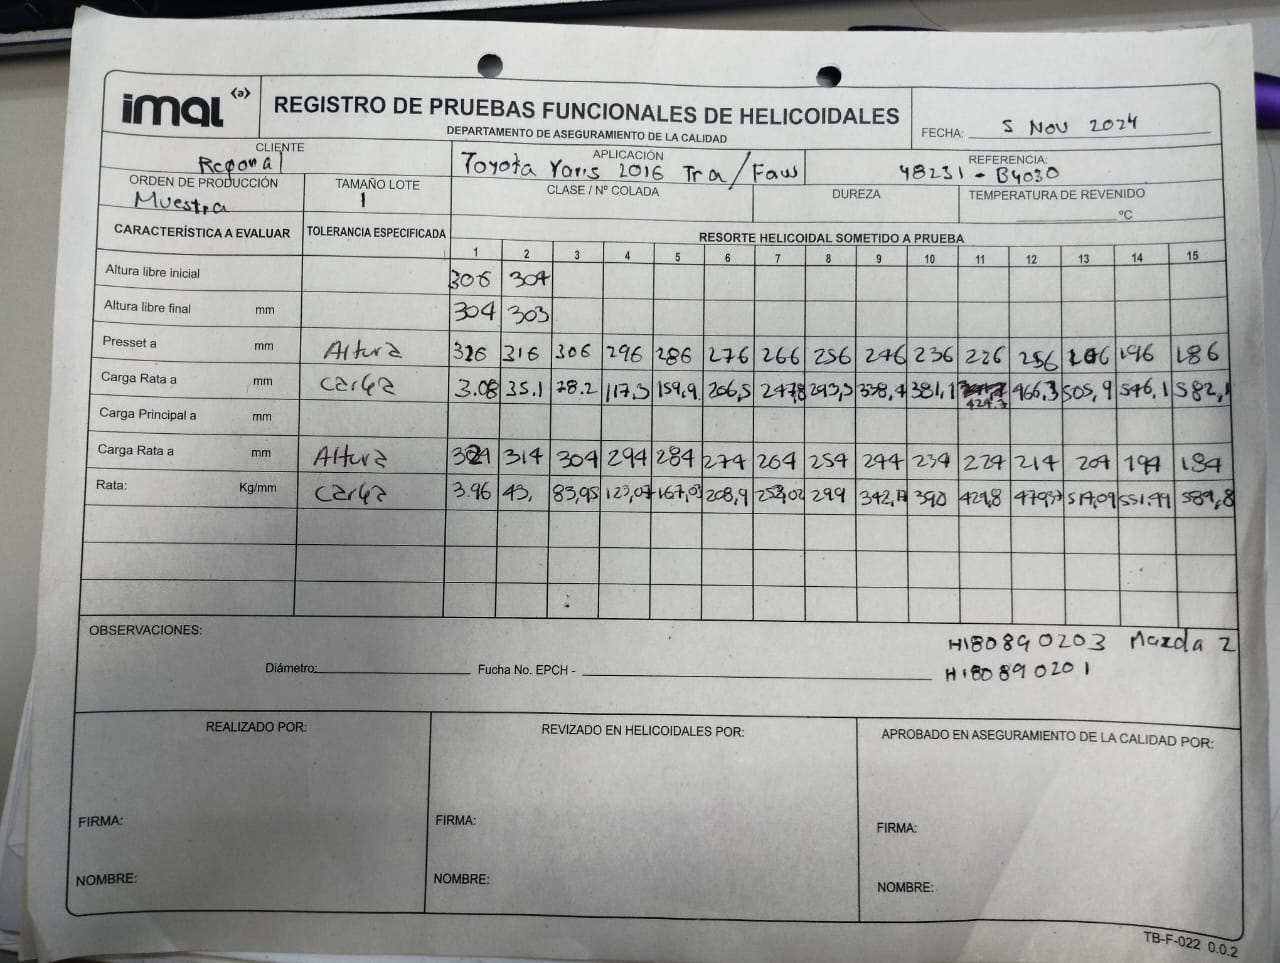 imal (a)
REGISTRO DE PRUEBAS FUNCIONALES DE HELICOIDALES
DEPARTAMENTO DE ASEGURAMIENTO DE LA CALIDAD
FECHA: 5 Nov 2024
CLIENTE
Regonal
APLICACIÓN
Toyota Yaris 2016 Tra/Faw
REFERENCIA:
48231-B4030
ORDEN DE PRODUCCIÓN
Muestra
TAMAÑO LOTE
1
CLASE / Nº COLADA
DUREZA
TEMPERATURA DE REVENIDO
ºC
CARACTERÍSTICA A EVALUAR TOLERANCIA ESPECIFICADA RESORTE HELICOIDAL SOMETIDO A PRUEBA
1 2 3 4 5 6 7 8 9 10 11 12 13 14 15
Altura libre inicial 306 304
Altura libre final mm 304 303
Presset a mm Altura 326 316 306 296 286 276 266 256 246 236 226 256 206 196 186
Carga Rata a mm Carga 3.08 35.1 78.2 117,3 159,9 206,5 247,8 293,3 338,4 381,1 424.7 466,3 505,9 546,1 582,1
Carga Principal a mm
Carga Rata a mm Altura 324 314 304 294 284 274 264 254 244 234 224 214 204 194 184
Rata: Kg/mm Carga 3.96 43, 83,95 123,07 167,03 208,9 252,02 299 342,7 390 429,8 479,37 517,09 551.99 589,8
OBSERVACIONES:
H180890203 Mazda 2
H180890201
Diámetro: Fucha No. EPCH -
REALIZADO POR: REVIZADO EN HELICOIDALES POR: APROBADO EN ASEGURAMIENTO DE LA CALIDAD POR:
FIRMA: FIRMA: FIRMA:
NOMBRE: NOMBRE: NOMBRE:
TB-F-022 0.0.2